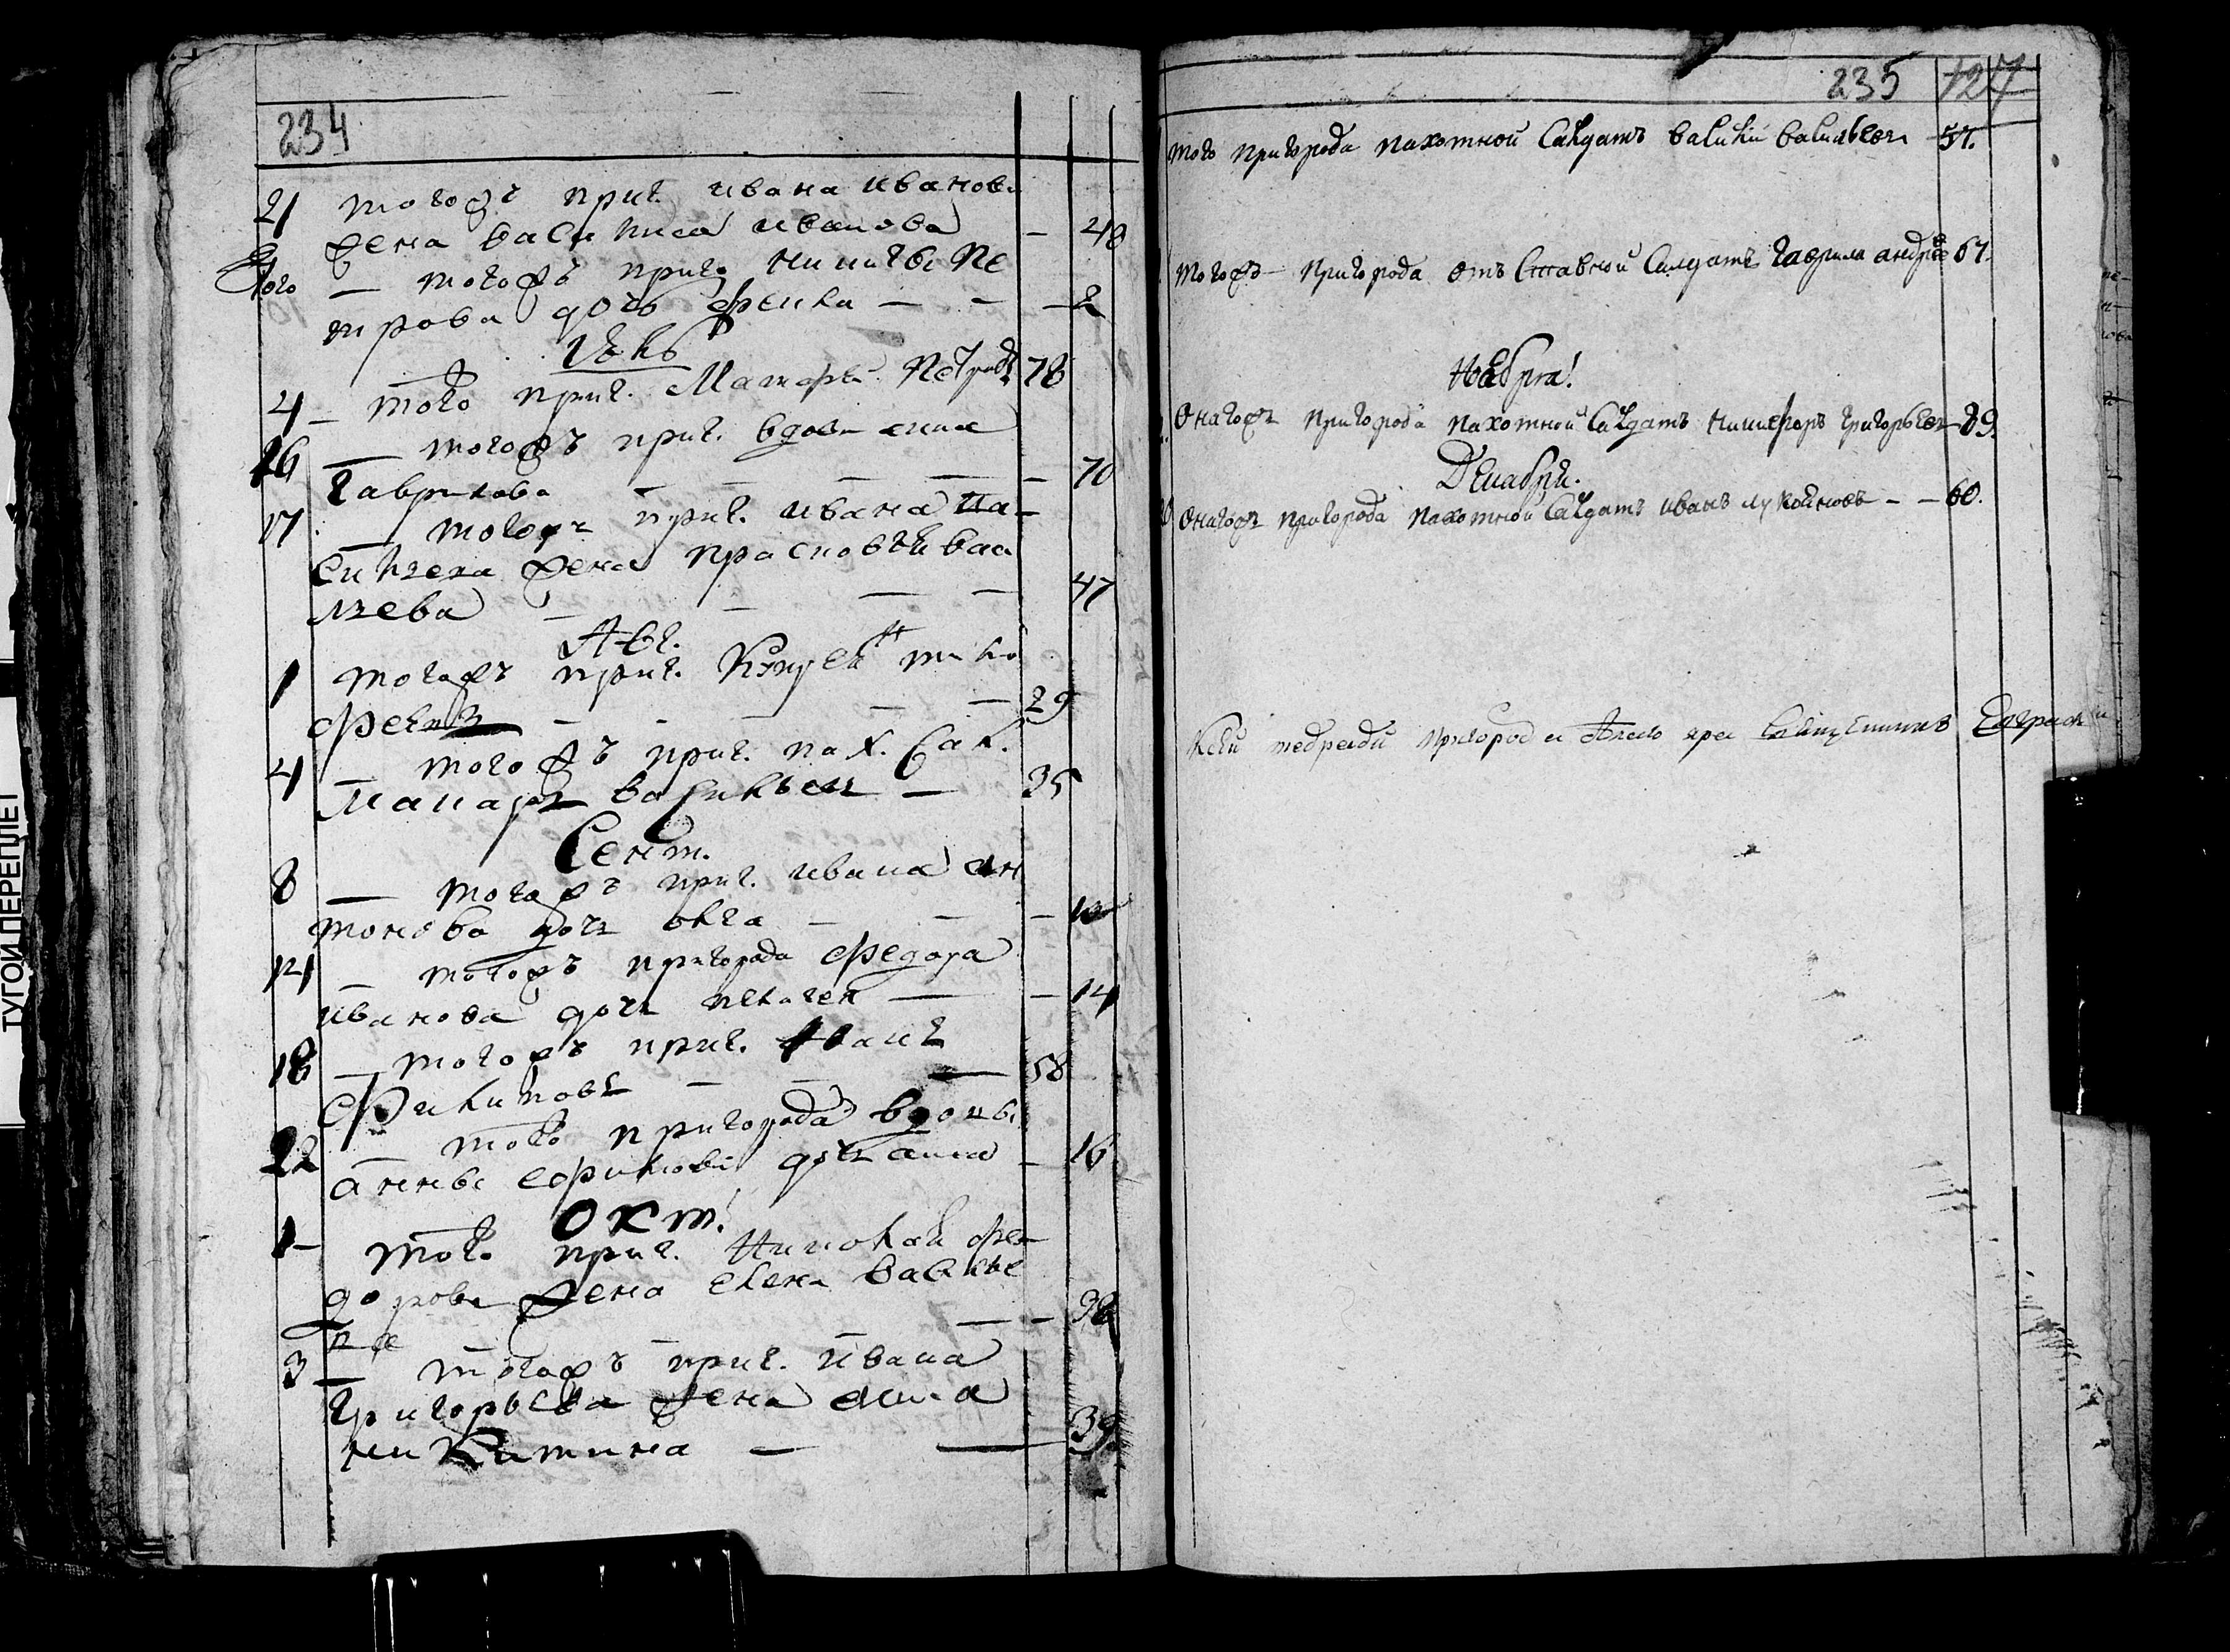 234
21 тогожъ приг. ивана иванова
жена василиса иванова — 40
того — тогожъ приг. никиты пе
трова дочь — — 2
4 — того приг. петровъ 78
16 — тогожъ приг. вдова анна
гаврилова — — — — 70
17 — тогожъ приг. ивана
жена прасковья васи
льева — — — 47
Авг.
1 тогожъ приг. тимо
феевъ — — — — 29
4 — тогожъ приг. пах. сал.
Макаръ васильевъ — 35
Сент.
8 — тогожъ приг. ивана ан
тонова дочь — — — 10
14 — тогожъ пригорода федора
иванова дочь пелагея — — 14
18 — тогожъ приг. иванъ
филиповъ — — — 58
22 — того пригорода вдовы
анны дочь анна — 16
Окт.
1 — того приг. николая фе
дорова жена елена василье
ва — — 38
3 — тогожъ приг. ивана
григорьева жена анна
никитина — — 39
ТУГОЙ ПЕРЕПЛЕТ
235 127
того пригорода пахотной салдатъ василий васильевъ 57.
тогожъ — пригорода отъставной салдатъ гаврила андреевъ 67.
Ноября
онагожъ пригорода пахотной салдатъ никифоръ григорьевъ 89.
Декабря.
онагожъ пригорода пахотной салдатъ иванъ — — 60.
тедради пригорода священникъ